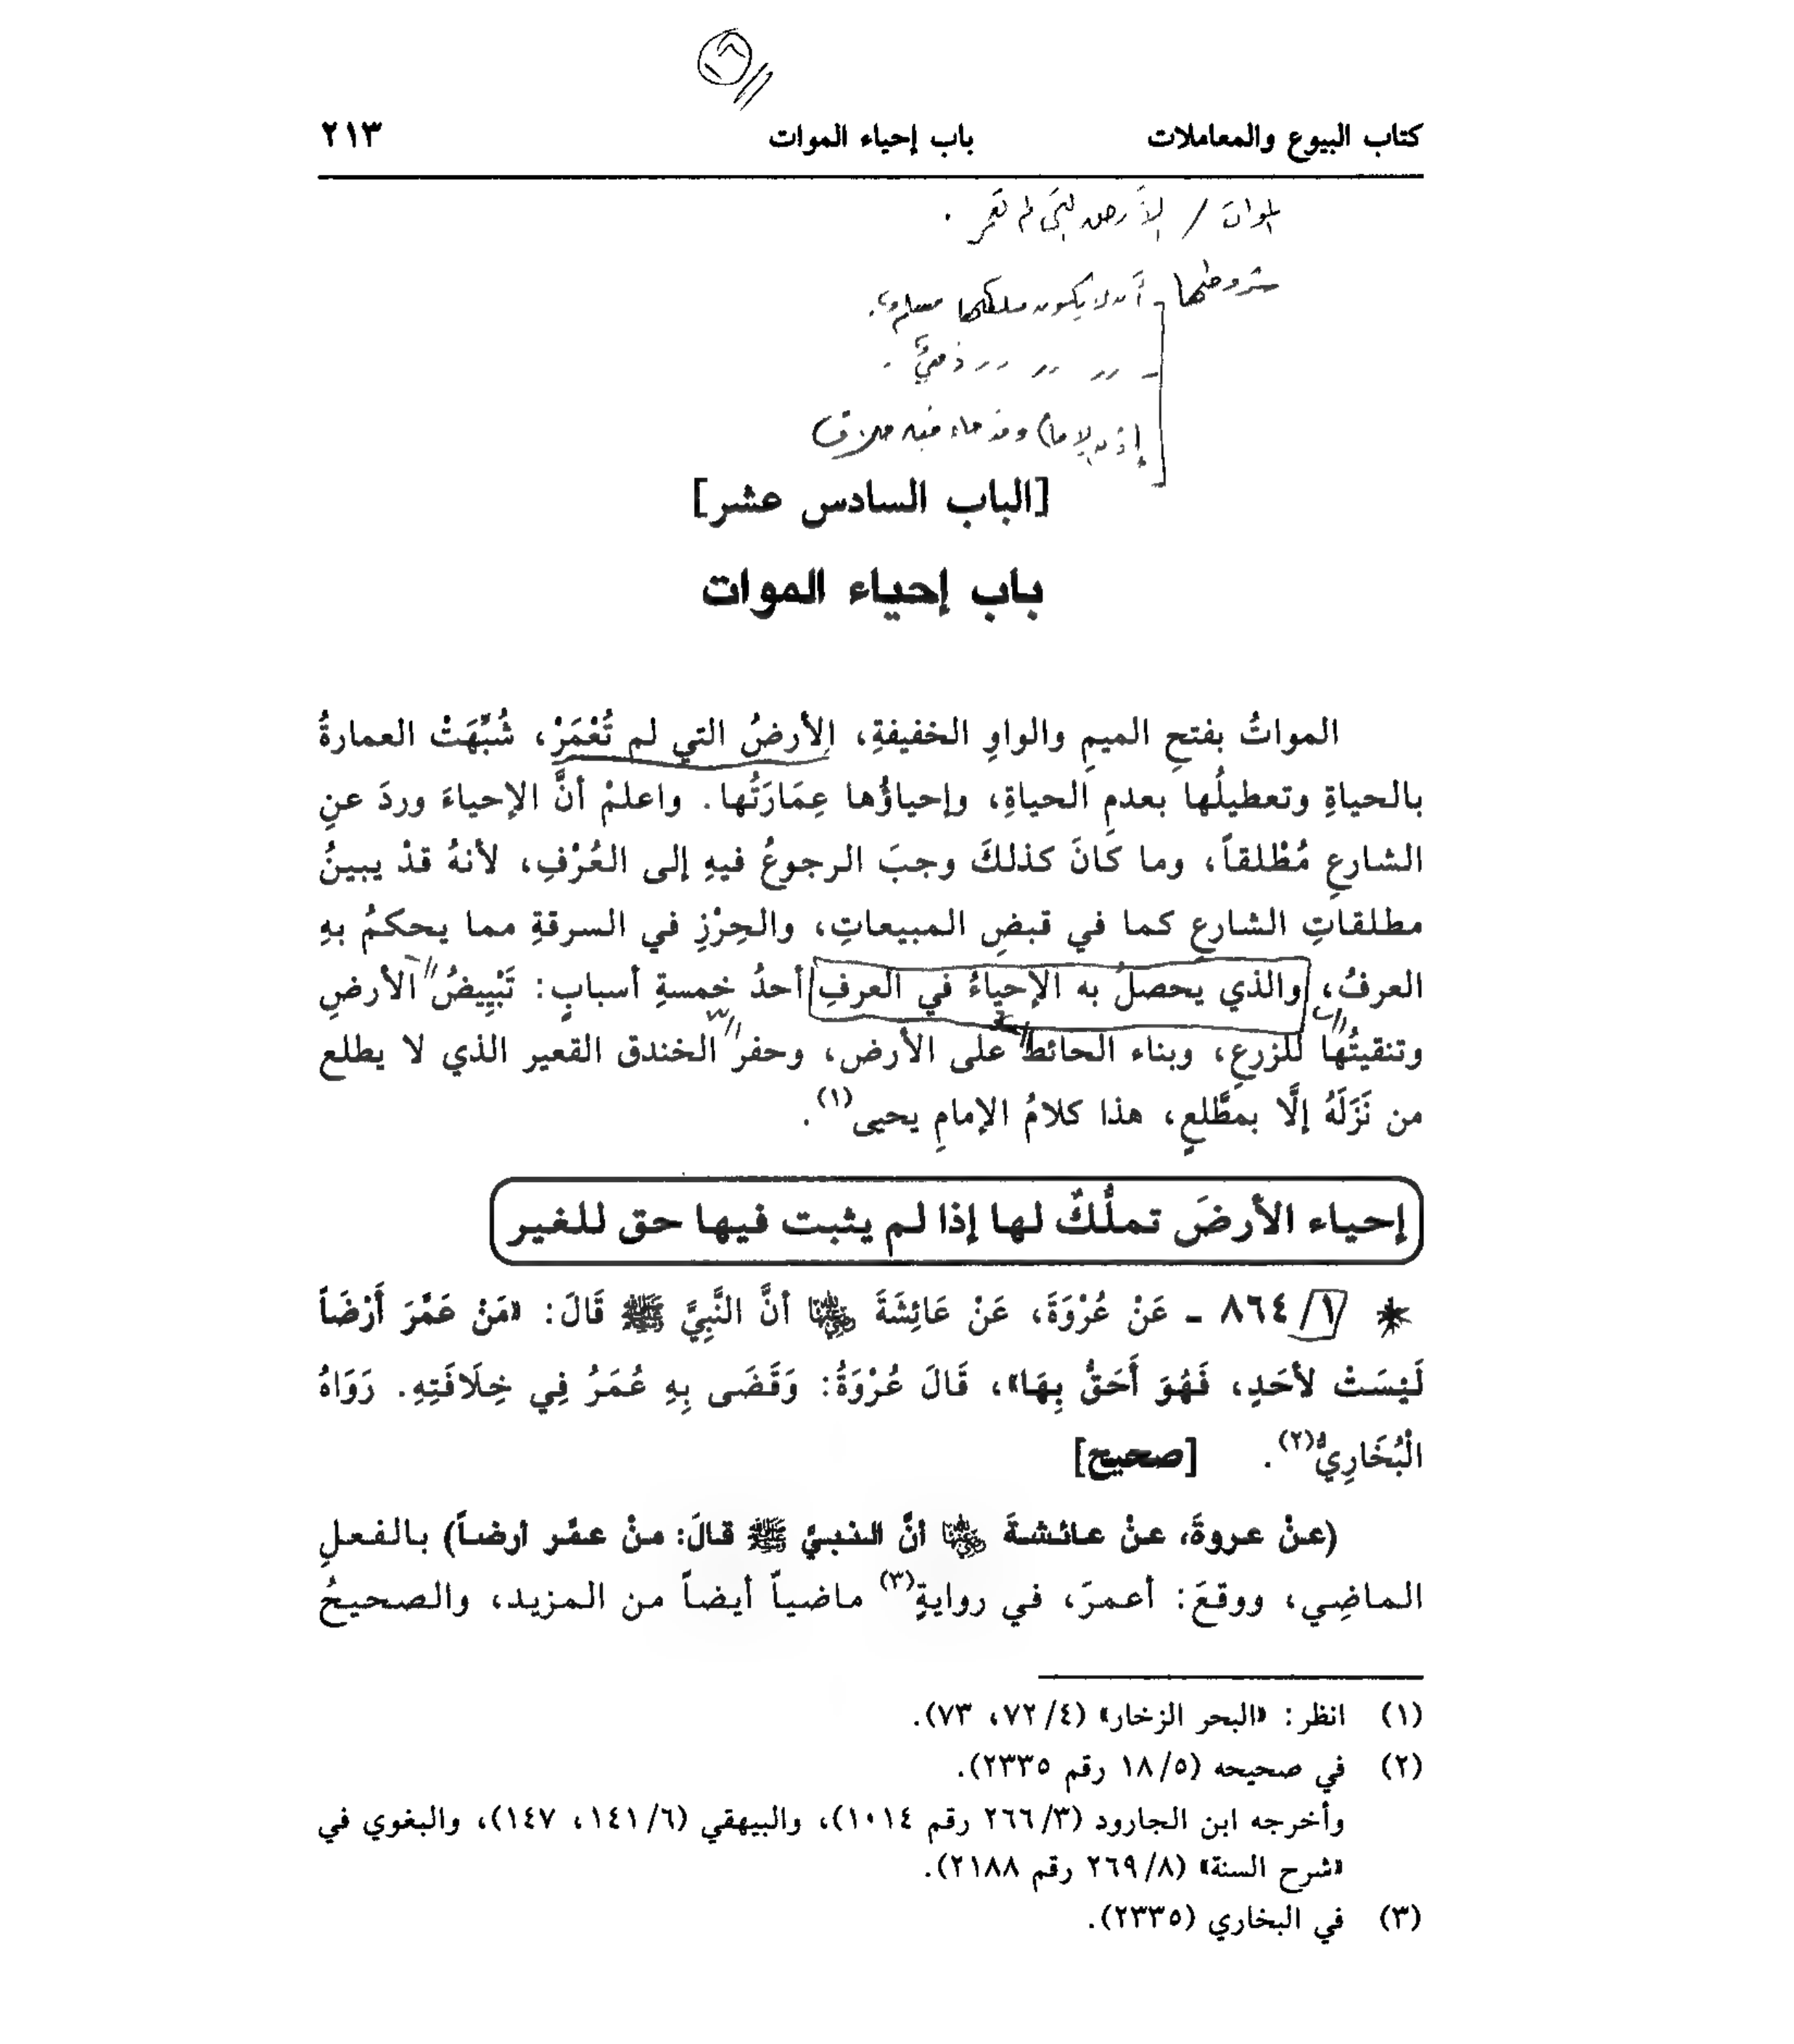 كتاب البيوع والمعاملات باب إحياء الموات ٢١٣
الموات / الأرض التي لم تعمر.
شروطها - أن لا يكون ملكها مسلم.
- ״ ״ ״ ״ ذميٌّ.
إذن الإمام وفيه خلاف
[الباب السادس عشر]
باب إحياء الموات
المواتُ بفتحِ الميمِ والواوِ الخفيفةِ، الأرضُ التي لم تُعْمَرْ، شُبِّهَتْ العمارةُ
بالحياةِ وتعطيلُها بعدمِ الحياةِ، وإحياؤُها عِمَارَتُها. واعلمْ أنَّ الإحياءَ وردَ عنِ
الشارعِ مُطْلقاً، وما كانَ كذلكَ وجبَ الرجوعُ فيهِ إلى العُرْفِ، لأنهُ قدْ يبينُ
مطلقاتِ الشارعِ كما في قبضِ المبيعاتِ، والحِرْزِ في السرقةِ مما يحكمُ بهِ
العرفُ، والذي يحصلُ به الإحياءُ في العرفِ أحدُ خمسةِ أسبابٍ: تَبْيِيضُ الأرضِ
وتنقيتُها للزرعِ، وبناء الحائط على الأرض، وحفر الخندق القعير الذي لا يطلع
من نَزَلَهُ إلَّا بمطَّلعٍ، هذا كلامُ الإمامِ يحيى(١).
إحياء الأرضَ تملُّكٌ لها إذا لم يثبت فيها حق للغير
* ١/ ٨٦٤ ـ عَنْ عُرْوَةَ، عَنْ عَائِشَةَ رضي الله عنها أنَّ النَّبِيَّ ﷺ قَالَ: «مَنْ عَمَّرَ أَرْضَاً
لَيْسَتْ لأحَدٍ، فَهُوَ أَحَقُّ بِهَا»، قَالَ عُرْوَةُ: وَقَضَى بِهِ عُمَرُ فِي خِلَافَتِهِ. رَوَاهُ
الْبُخَارِيُّ(٢). [صحيح]
(عنْ عروةَ، عنْ عائشةَ رضي الله عنها أنَّ النبيَّ ﷺ قالَ: منْ عمَّر أرضاً) بالفعلِ
الماضِي، ووقعَ: أعمرَ، في روايةٍ(٣) ماضياً أيضاً من المزيد، والصحيحُ
(١) انظر: «البحر الزخار» (٤/ ٧٢، ٧٣).
(٢) في صحيحه (٥/ ١٨ رقم ٢٣٣٥).
وأخرجه ابن الجارود (٣/ ٢٦٦ رقم ١٠١٤)، والبيهقي (٦/ ١٤١، ١٤٧)، والبغوي في
«شرح السنة» (٨/ ٢٦٩ رقم ٢١٨٨).
(٣) في البخاري (٢٣٣٥).